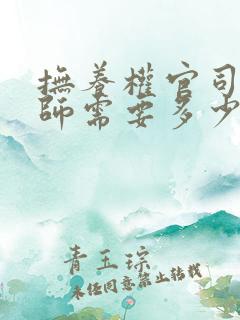 撫養權官司
師需要多少
青玉琮
未经同意禁止转载